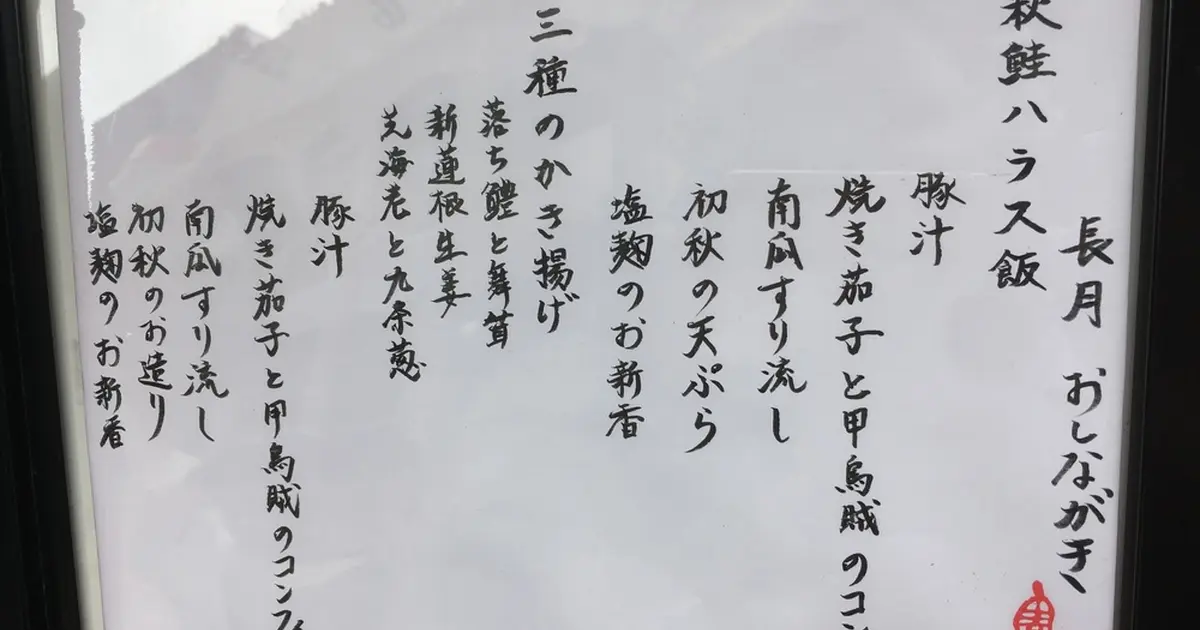 長月 おしながき
秋鮭ハラス飯
豚汁
焼き茄子と甲烏賊のコン
南瓜すり流し
初秋の天ぷら
塩麹のお新香
三種のかき揚げ
落ち鱧と舞茸
新蓮根生姜
芝海老と九条葱
豚汁
焼き茄子と甲烏賊のコンフィ
南瓜すり流し
初秋のお造り
塩麹のお新香